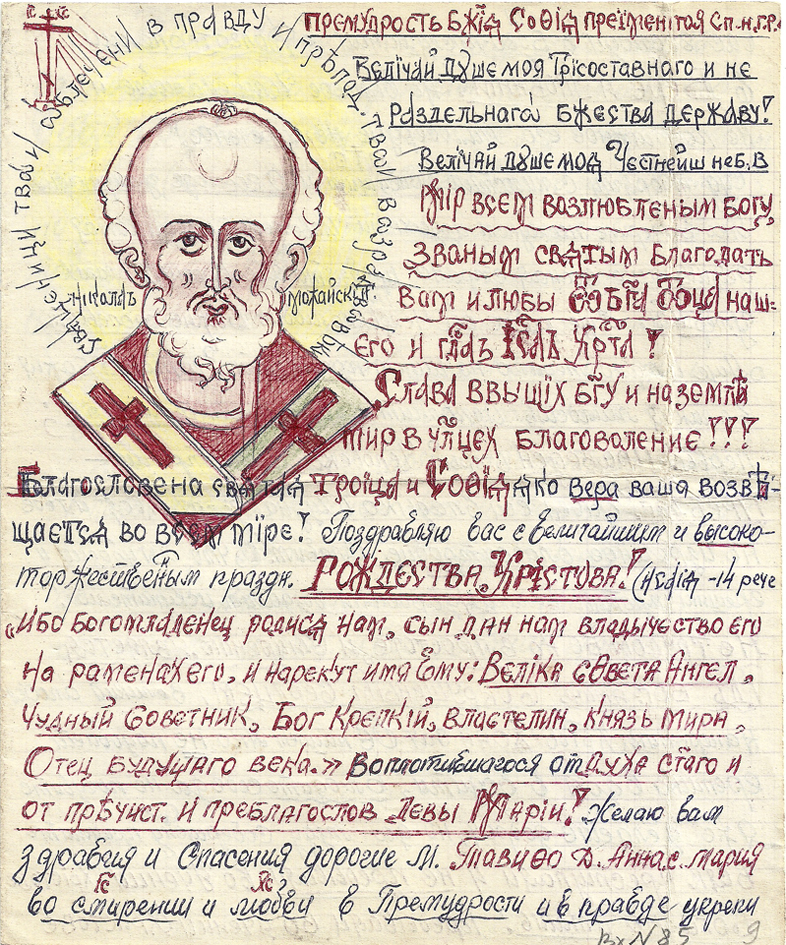 Священицы твои облекутся в правду и препод. твои возра
IC XC
Николаъ Можайскъ
Премудрость Бж҃їѧ Софїѧ преименитоя Сп. н. Г. Р.
Велїчай душе моя Трїсоставнаго и не
Раздельнагѡ Бжества державу!
Велїчай душе моѧ Честнейш неб. в
Мир всем возлюбленым Богу,
званым свѧтым Благодать
вам и любы ѿ Бг҃а ѿца наш=
его и гд҃аъ Іс҃аъ Хрта !
Слава ввышїх бг҃у и на земли
мир в чл҃цех благоволение!!!
Благословена свѧтаѧ Троїца и Софїѧ ѧко вера ваша возвѣ-
щаетсѧ во всем мїре! Поздравляю вас с величайшим и высоко-
торжественым праздн. Рождества. Христова! (Исаїѧ -14 рече
„Ибо богомладенец родисѧ нам, сын дан нам владычество его
на раменах его, и нарекут имя Ему: Велїка совета Ангел,
Чудный Советник, Бог Крепкїй, властелин, князь мира,
Отец будущаго века.» Воплотившагося от духа ст҃аго и
от прѣчист. и преблагослов Девы Марїи! Желаю вам
здравия и Спасения дорогие М. Тавифо Д. Анна с. Мария
Іс҃ Хс҃
во смирении и любви в Премудрости и в правде церкви
Вх N 85 9